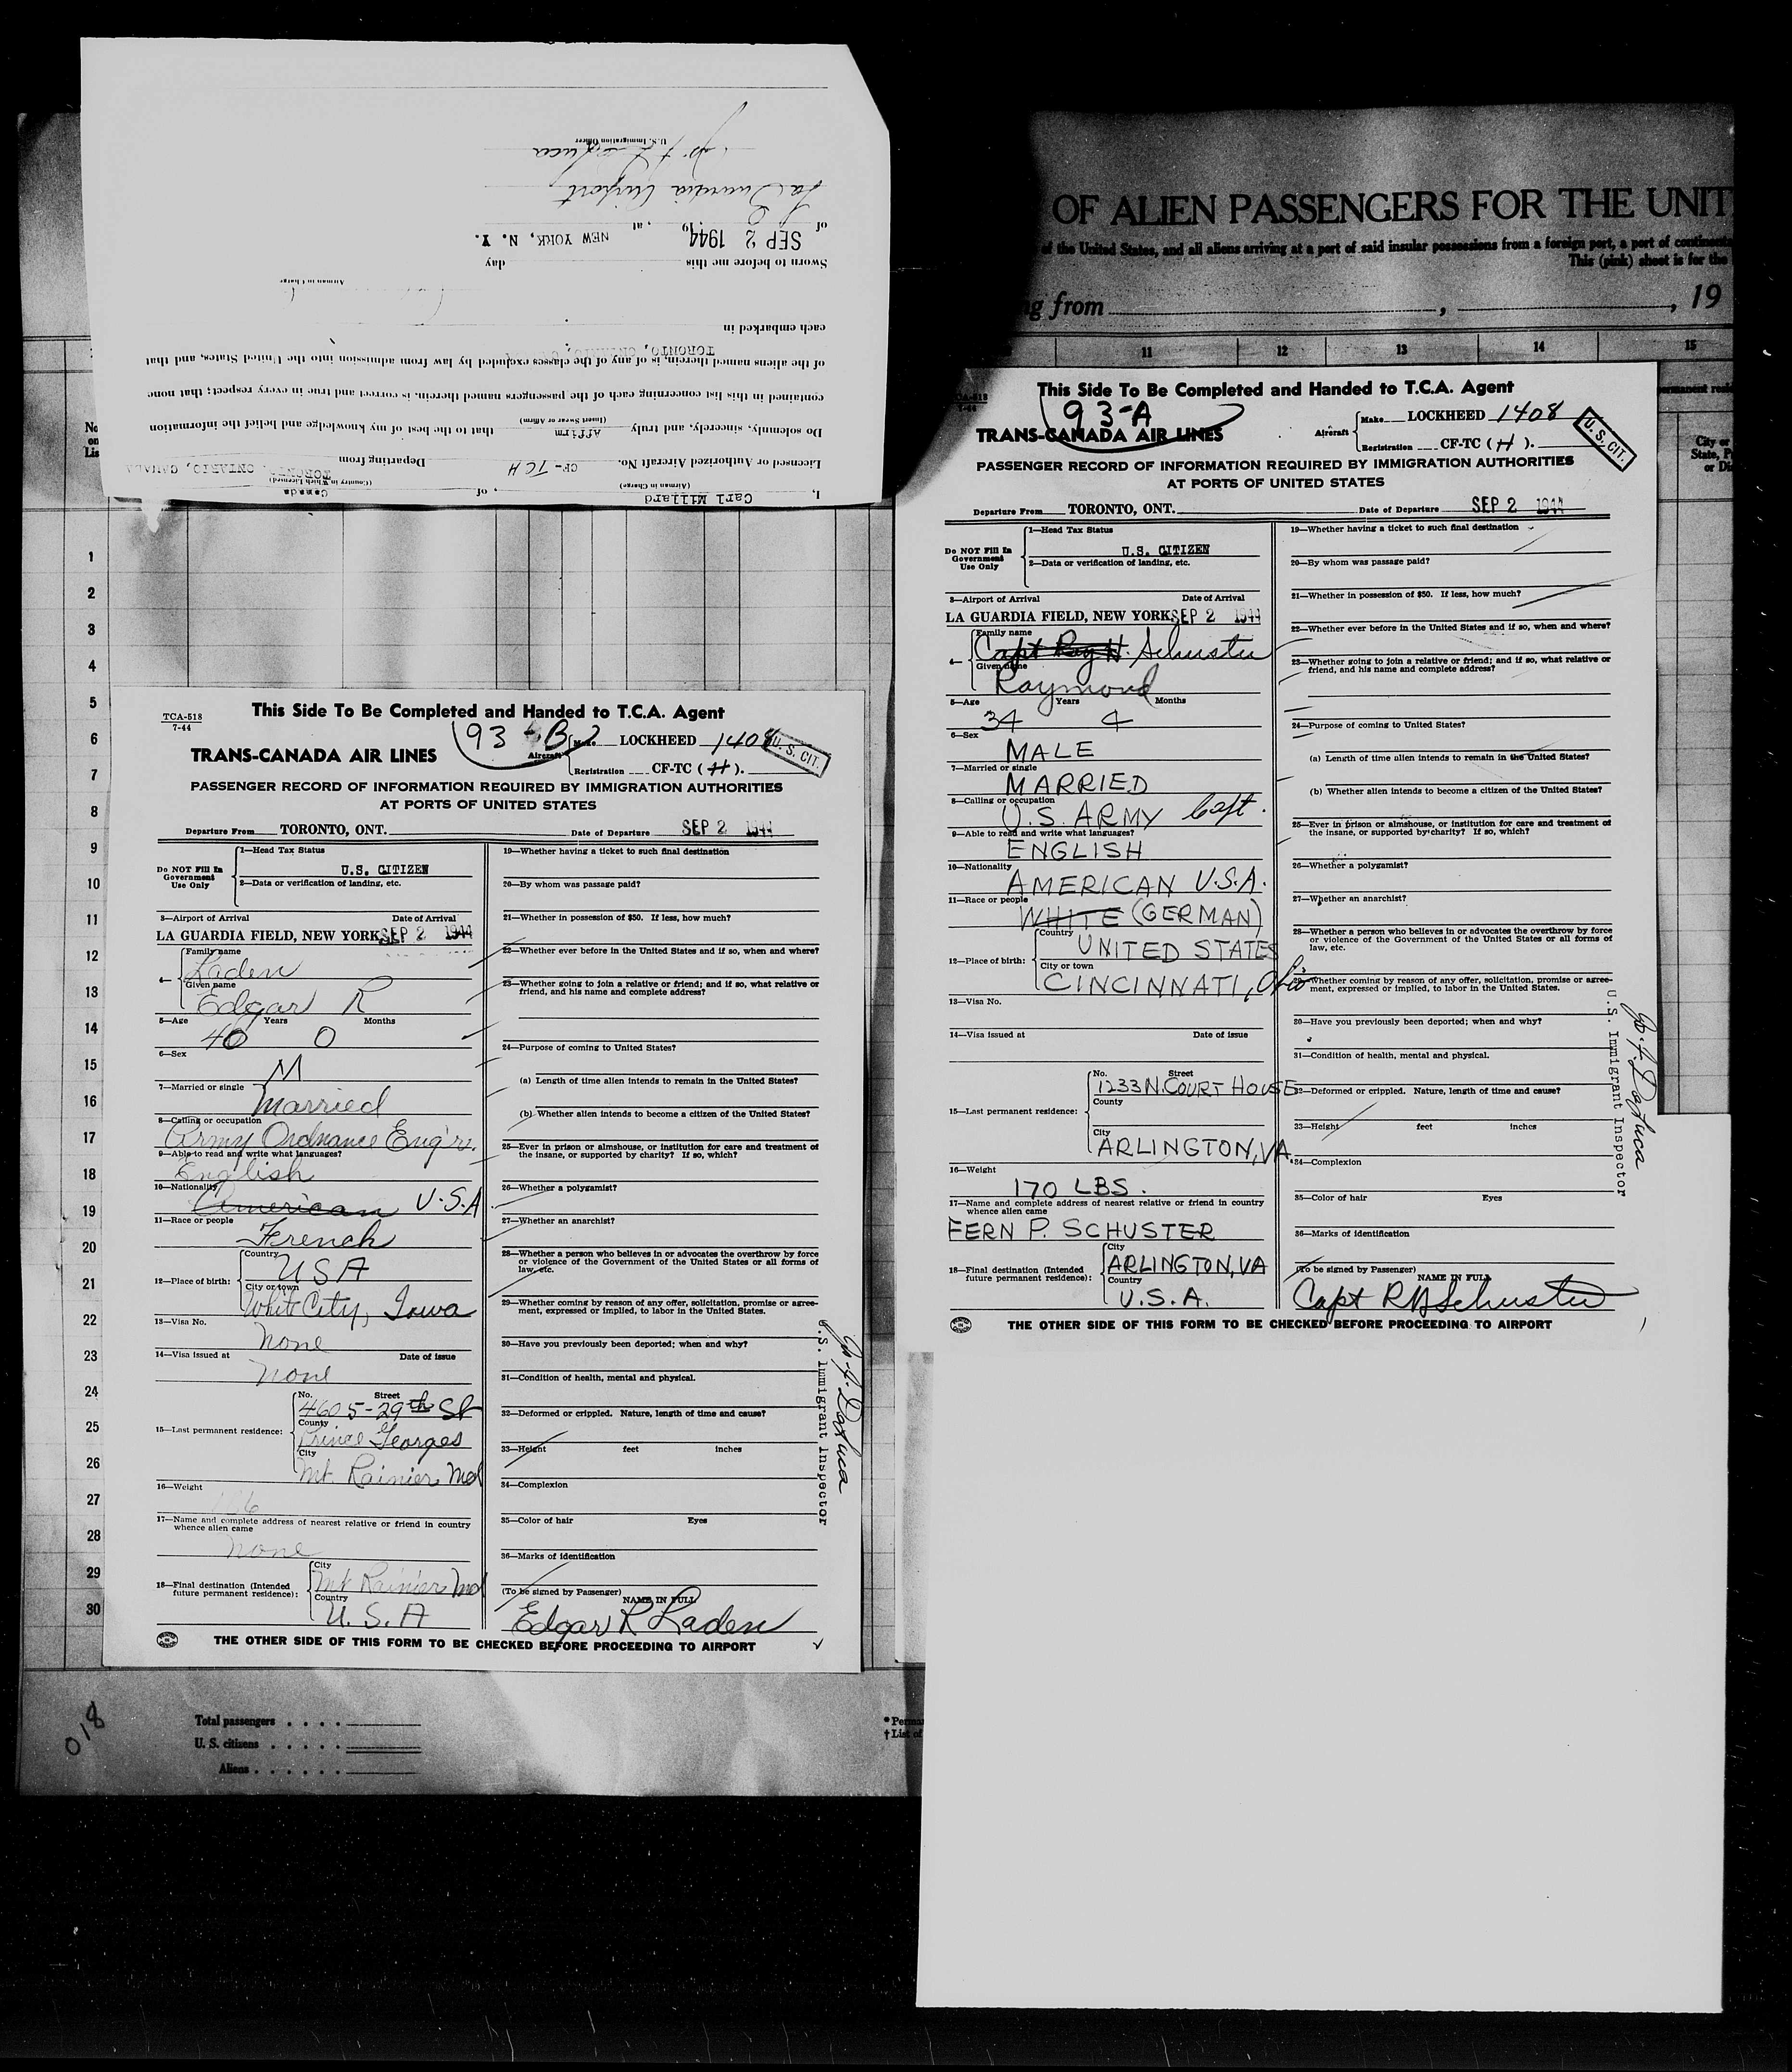 I, Carl Millard, of Canada
(Airman in Charge) (Country in Which Licensed)
Licensed or Authorized Aircraft No. CF-TCH Departing from TORONTO, ONTARIO, CANADA
Do solemnly, sincerely, and truly Affirm that to the best of my knowledge and belief the information
(Insert Swear or Affirm)
contained in this list concerning each of the passengers named therein, is correct and true in every respect; that none
of the aliens named therein, is of any of the classes excluded by law from admission into the United States, and that
each embarked in TORONTO, ONTARIO,
Airman in Charge
Sworn to before me this day
of SEP 2 1944 19 , at NEW YORK, N. Y.
La Guardia Airport
U.S. Immigration Officer
OF ALIEN PASSENGERS FOR THE UNIT
of the United States, and all aliens arriving at a port of said insular possessions from a foreign port, a port of continent
This (pink) sheet is for the
ng from , , 19
11 12 13 14 15
No
on
Lis
1
2
3
4
5
6
7
8
9
10
11
12
13
14
15
16
17
18
19
20
21
22
23
24
25
26
27
28
29
30
TCA-518
7-44
This Side To Be Completed and Handed to T.C.A. Agent
93-B
TRANS-CANADA AIR LINES
Aircraft Make LOCKHEED 1408
Registration CF-TC (H).
U. S. CIT.
PASSENGER RECORD OF INFORMATION REQUIRED BY IMMIGRATION AUTHORITIES
AT PORTS OF UNITED STATES
Departure From TORONTO, ONT. Date of Departure SEP 2 1944
Do NOT Fill In
Government
Use Only
1—Head Tax Status
U.S. CITIZEN
2—Data or verification of landing, etc.
3—Airport of Arrival Date of Arrival
LA GUARDIA FIELD, NEW YORK SEP 2 1944
4— Family name
Laden
Given name
Edgar R
5—Age Years Months
40 0
6—Sex
M
7—Married or single
Married
8—Calling or occupation
Army Ordnance Eng'r.
9—Able to read and write what languages?
English
10—Nationality
American U.S.A
11—Race or people
French
12—Place of birth: Country
USA
City or town
White City, Iowa
13—Visa No.
None
14—Visa issued at Date of issue
none
15—Last permanent residence: No. Street
4605-29th St
County
Prince Georges
City
Mt. Rainier Md
16—Weight
17—Name and complete address of nearest relative or friend in country
whence alien came
none
18—Final destination (Intended
future permanent residence):
City
Mt Rainier Md
Country
U. S. A
19—Whether having a ticket to such final destination
20—By whom was passage paid?
21—Whether in possession of $50. If less, how much?
22—Whether ever before in the United States and if so, when and where?
23—Whether going to join a relative or friend; and if so, what relative or
friend, and his name and complete address?
24—Purpose of coming to United States?
(a) Length of time alien intends to remain in the United States?
(b) Whether alien intends to become a citizen of the United States?
25—Ever in prison or almshouse, or institution for care and treatment of
the insane, or supported by charity? If so, which?
26—Whether a polygamist?
27—Whether an anarchist?
28—Whether a person who believes in or advocates the overthrow by force
or violence of the Government of the United States or all forms of
law, etc.
29—Whether coming by reason of any offer, solicitation, promise or agree-
ment, expressed or implied, to labor in the United States.
30—Have you previously been deported; when and why?
31—Condition of health, mental and physical.
32—Deformed or crippled. Nature, length of time and cause?
33—Height feet inches
34—Complexion
35—Color of hair Eyes
36—Marks of identification
(To be signed by Passenger)
NAME IN FULL
Edgar R Laden
U.S. Immigrant Inspector
THE OTHER SIDE OF THIS FORM TO BE CHECKED BEFORE PROCEEDING TO AIRPORT
018
Total passengers . . . .
U. S. citizens . . . . .
Aliens . . . . . .
* Perma
† List of
7-44
This Side To Be Completed and Handed to T.C.A. Agent
93-A
TRANS-CANADA AIR LINES
Aircraft Make LOCKHEED 1408
Registration CF-TC (H).
U. S. CIT.
PASSENGER RECORD OF INFORMATION REQUIRED BY IMMIGRATION AUTHORITIES
AT PORTS OF UNITED STATES
Departure From TORONTO, ONT. Date of Departure SEP 2 1944
Do NOT Fill In
Government
Use Only
1—Head Tax Status
U.S. CITIZEN
2—Data or verification of landing, etc.
3—Airport of Arrival Date of Arrival
LA GUARDIA FIELD, NEW YORK SEP 2 1944
4— Family name
Capt Ray H. Schuster
Given name
Raymond
5—Age Years Months
34 4
6—Sex
MALE
7—Married or single
MARRIED
8—Calling or occupation
U.S. ARMY Capt.
9—Able to read and write what languages?
ENGLISH
10—Nationality
AMERICAN U.S.A.
11—Race or people
WHITE (GERMAN)
12—Place of birth: Country
UNITED STATES
City or town
CINCINNATI, Ohio
13—Visa No.
14—Visa issued at Date of issue
15—Last permanent residence: No. Street
1233 N. COURT HOUSE
County
City
ARLINGTON, VA.
16—Weight
170 LBS.
17—Name and complete address of nearest relative or friend in country
whence alien came
FERN P. SCHUSTER
18—Final destination (Intended
future permanent residence):
City
ARLINGTON, VA
Country
U.S.A.
19—Whether having a ticket to such final destination
20—By whom was passage paid?
21—Whether in possession of $50. If less, how much?
22—Whether ever before in the United States and if so, when and where?
23—Whether going to join a relative or friend; and if so, what relative or
friend, and his name and complete address?
24—Purpose of coming to United States?
(a) Length of time alien intends to remain in the United States?
(b) Whether alien intends to become a citizen of the United States?
25—Ever in prison or almshouse, or institution for care and treatment of
the insane, or supported by charity? If so, which?
26—Whether a polygamist?
27—Whether an anarchist?
28—Whether a person who believes in or advocates the overthrow by force
or violence of the Government of the United States or all forms of
law, etc.
29—Whether coming by reason of any offer, solicitation, promise or agree-
ment, expressed or implied, to labor in the United States.
30—Have you previously been deported; when and why?
31—Condition of health, mental and physical.
32—Deformed or crippled. Nature, length of time and cause?
33—Height feet inches
34—Complexion
35—Color of hair Eyes
36—Marks of identification
(To be signed by Passenger)
NAME IN FULL
Capt R H Schuster
U.S. Immigrant Inspector
THE OTHER SIDE OF THIS FORM TO BE CHECKED BEFORE PROCEEDING TO AIRPORT